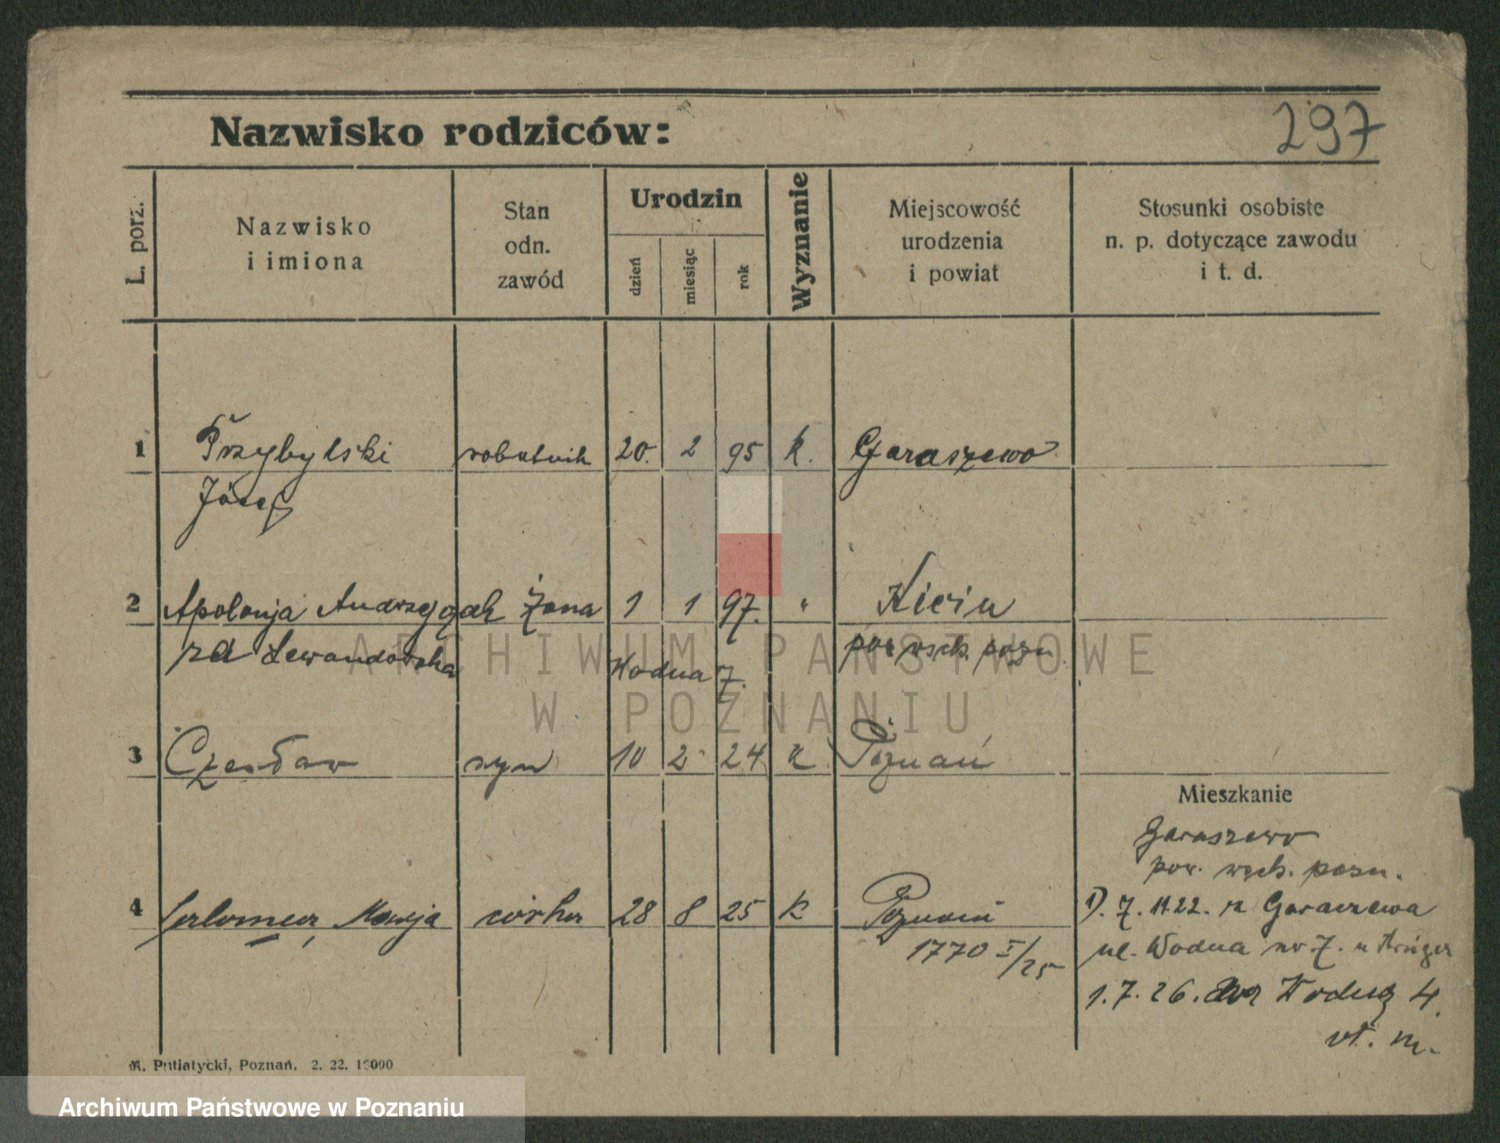 297
Nazwisko rodziców:
L. porz.
Nazwisko
i imiona
Stan
odn.
zawód
Urodzin
dzień
miesiąc
rok
Wyznanie
Miejscowość
urodzenia
i powiat
Stosunki osobiste
n. p. dotyczące zawodu
i t. d.
1 Przybylski robotnik 20. 2 95 k. Garaszewo
Józef
2 Apolonja Andrzejczak żona 1 1 97. " Kicin
za Lewandowska Wodna 7. pow. wsch. pozn.
3 Czesław syn 10 2 24 k Poznań
Mieszkanie
Garaszewo
pow. wsch. pozn.
4 Salomea, Marja córka 28 8 25 k Poznań
1770 I/25
1). 7. 11.22. z Garaszewa
ul. Wodna nr 7. u Krüger
1. 7. 26. Wodna 4.
vt. m.
M. Putiatycki, Poznań. 2. 22. 10000
ARCHIWUM PAŃSTWOWE
W POZNANIU
Archiwum Państwowe w Poznaniu